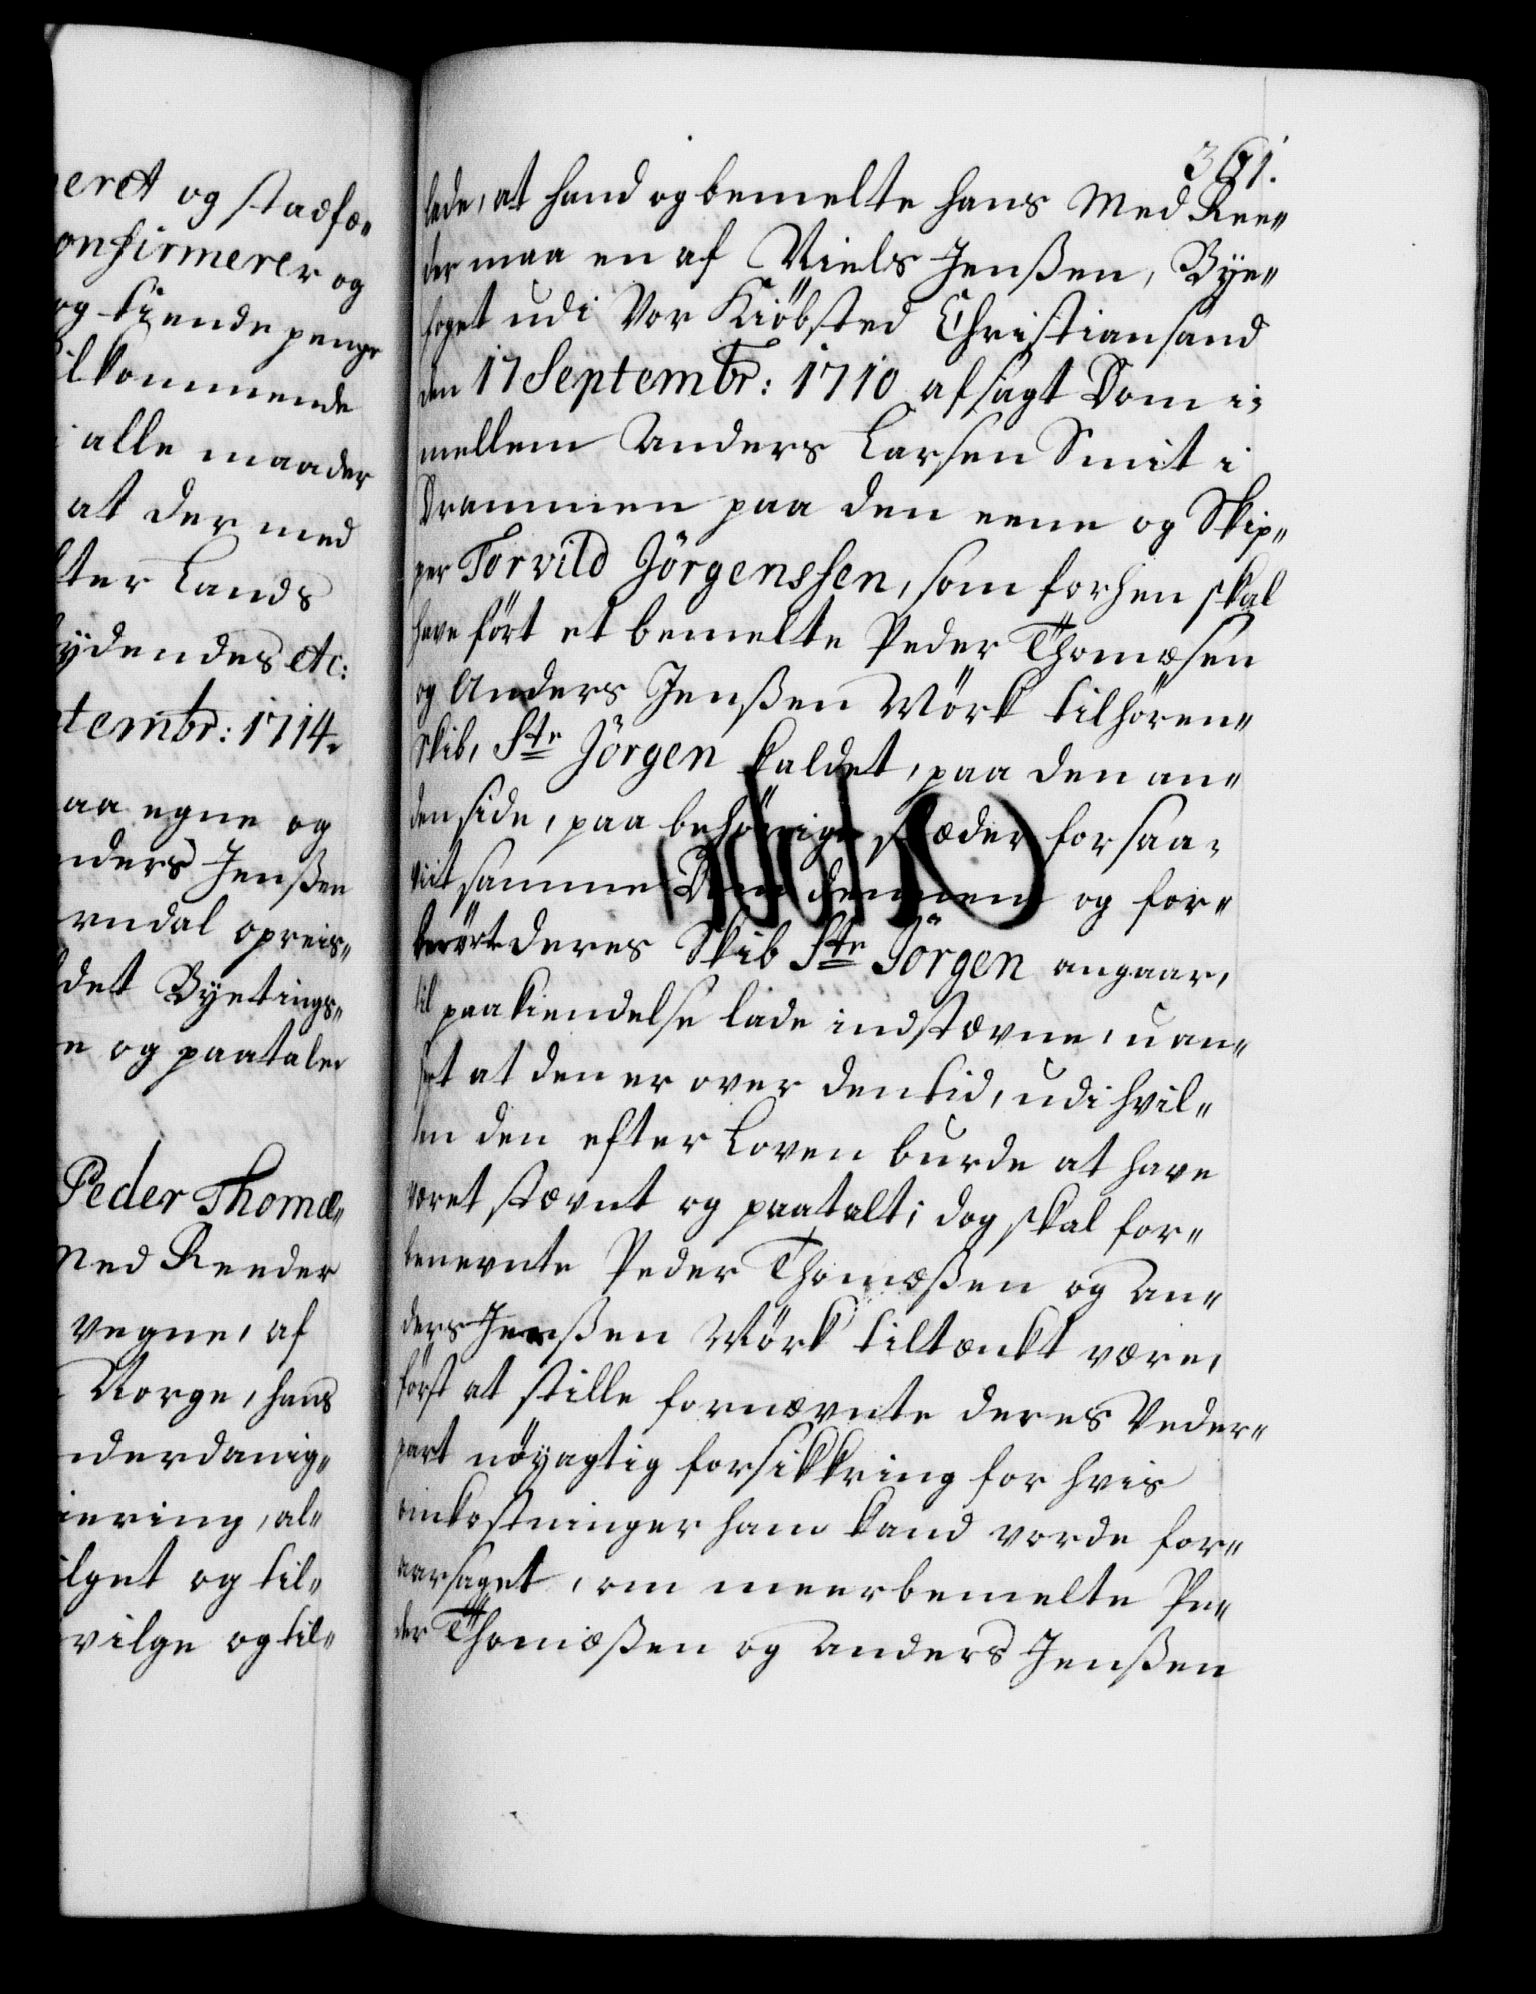 eret og stadfæ„
onfirmerer og
og tiende penge
ilkommende
alle maader
at der med
fter Lands
ydendes etc:
ptembr: 1714.
aa egne og
nders Jenßen
rndal opreis„
det Byetings„
e og paataler
Peder Thomæ„
Med Reeder
vegne, af
Norge, hans
nderdanig„
iering, al„
ilget og til„
vilge og til„
361.
lade, at hand og bemelte hans Med Ree„
der maa en af Niels Jenßen, Bye„
foget udi Vor Kiöbsted Christiansand
den 17 Septembr: 1710 afsagt Dom i„
mellem Anders Larsen Smit i
Drammen paa den eene og Skip„
per Torvild Jörgenssen, som forhen skal
have fört et bemelte Peder Thomæsen
og Anders Jenßen Mörk tilhören„
Skib, Ste Jörgen kaldet, paa den an„
den side, paa behörige stæder forsaa„
vit samme Dom dennem og for„
berörte deres Skib Ste Jörgen angaar,
til paakiendelse lade indstævne, uan„
set at den er over den tid, udi hvil„
ken den efter Loven burde at have
været stævnt og paatalt; dog skal for„
benevnte Peder Thomæßen og An„
ders Jenßen Mörk tiltænkt være,
först at stille fornævnte deres Veder„
part nöyagtig forsikkring for hvis
omkostninger ham kand vorde for„
aarsaget, om meerbemelte Pe„
der Thomæßen og Anders Jenßen